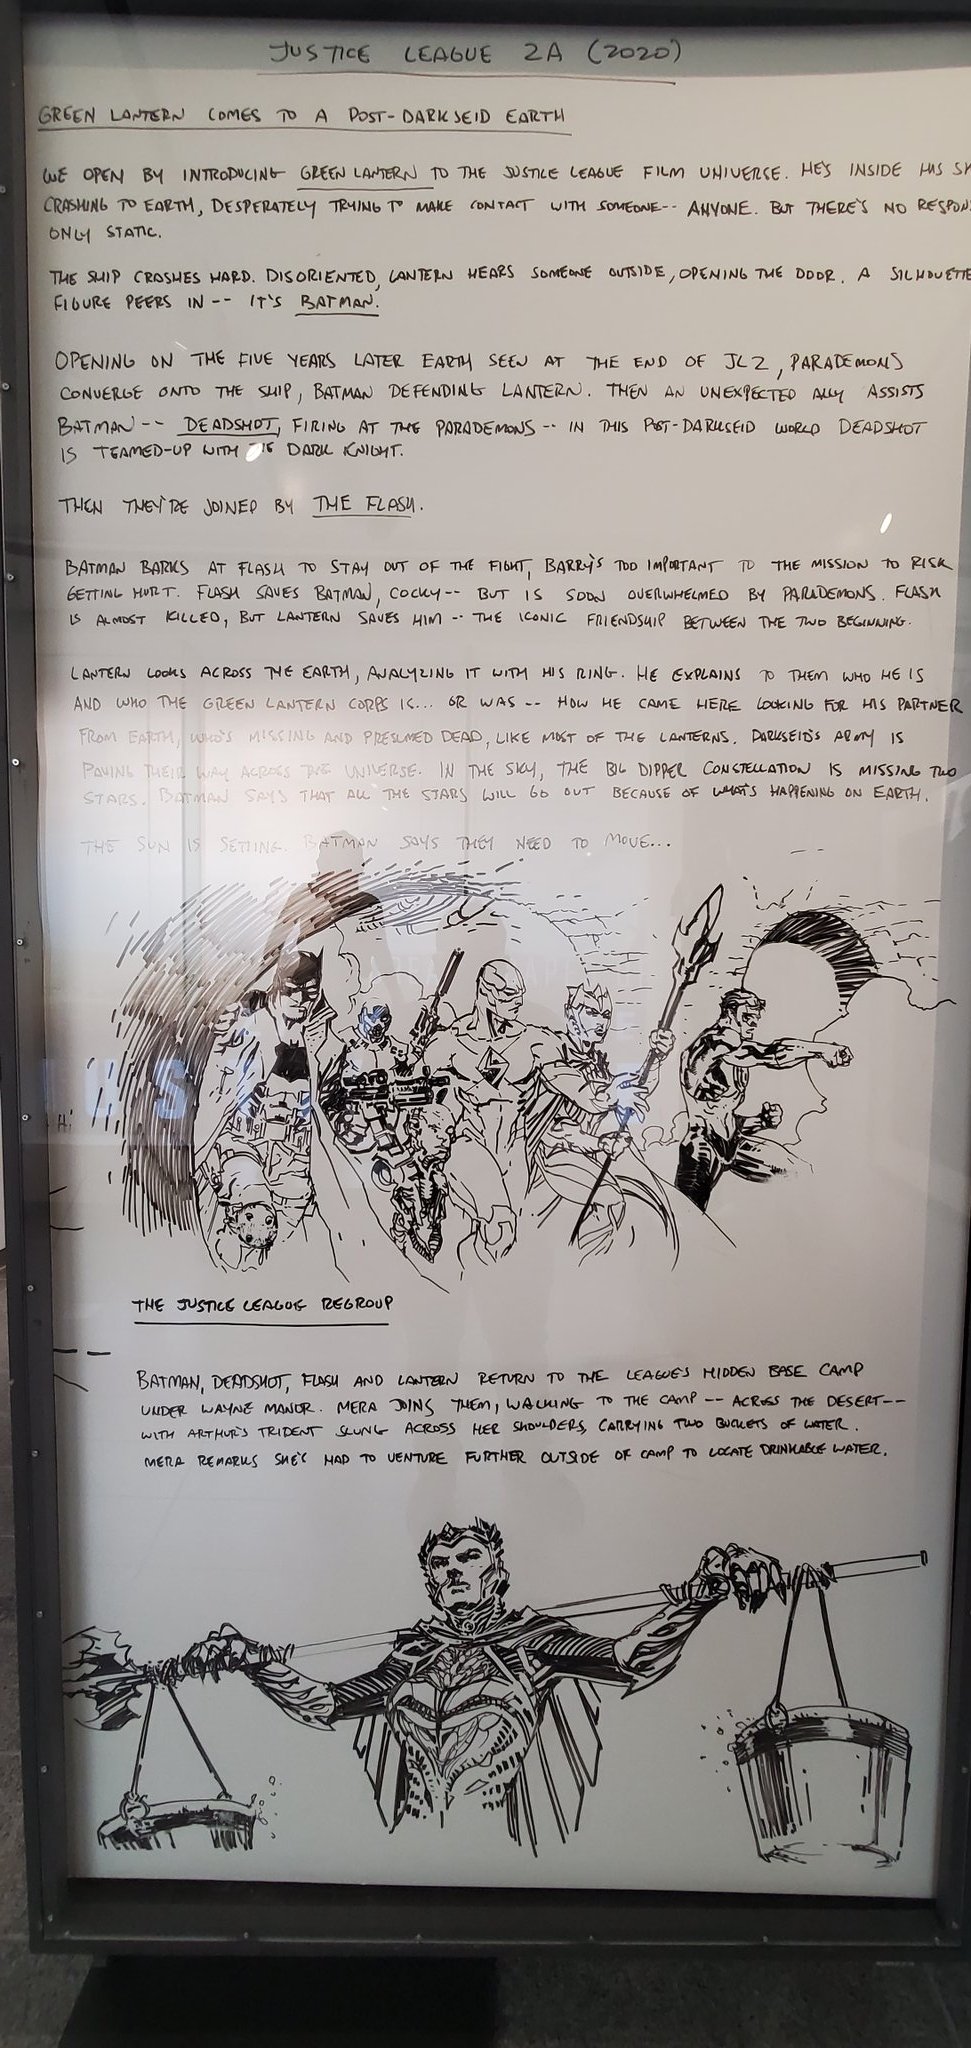 JUSTICE LEAGUE 2A (2020)
GREEN LANTERN COMES TO A POST-DARKSEID EARTH
WE OPEN BY INTRODUCING GREEN LANTERN TO THE JUSTICE LEAGUE FILM UNIVERSE. HE'S INSIDE HIS SH
CRASHING TO EARTH, DESPERATELY TRYING TO MAKE CONTACT WITH SOMEONE-- ANYONE. BUT THERE'S NO RESPON
ONLY STATIC.
THE SHIP CRASHES HARD. DISORIENTED, LANTERN HEARS SOMEONE OUTSIDE, OPENING THE DOOR. A SILHOUETTE
FIGURE PEERS IN -- IT'S BATMAN.
OPENING ON THE FIVE YEARS LATER EARTH SEEN AT THE END OF JL2, PARADEMONS
CONVERGE ONTO THE SHIP, BATMAN DEFENDING LANTERN. THEN AN UNEXPECTED ALLY ASSISTS
BATMAN -- DEADSHOT, FIRING AT THE PARADEMONS -- IN THIS POST-DARKSEID WORLD DEADSHOT
IS TEAMED-UP WITH DARK KNIGHT.
THEN THEY'RE JOINED BY THE FLASH.
BATMAN BARKS AT FLASH TO STAY OUT OF THE FIGHT, BARRY'S TOO IMPORTANT TO THE MISSION TO RISK
GETTING HURT. FLASH SAVES BATMAN, COCKY-- BUT IS SOON OVERWHELMED BY PARADEMONS. FLASH
IS ALMOST KILLED, BUT LANTERN SAVES HIM -- THE ICONIC FRIENDSHIP BETWEEN THE TWO BEGINNING.
LANTERN LOOKS ACROSS THE EARTH, ANALYZING IT WITH HIS RING. HE EXPLAINS TO THEM WHO HE IS
AND WHO THE GREEN LANTERN CORPS IS... OR WAS -- HOW HE CAME HERE LOOKING FOR HIS PARTNER
FROM EARTH, WHO'S MISSING AND PRESUMED DEAD, LIKE MOST OF THE LANTERNS. DARKSEID'S ARMY IS
PAVING THEIR WAY ACROSS THE UNIVERSE. IN THE SKY, THE BIG DIPPER CONSTELLATION IS MISSING TWO
STARS. BATMAN SAYS THAT ALL THE STARS WILL GO OUT BECAUSE OF WHAT'S HAPPENING ON EARTH.
THE SUN IS SETTING. BATMAN SAYS THEY NEED TO MOVE...
THE JUSTICE LEAGUE REGROUP
BATMAN, DEADSHOT, FLASH AND LANTERN RETURN TO THE LEAGUE'S HIDDEN BASE CAMP
UNDER WAYNE MANOR. MERA JOINS THEM, WALKING TO THE CAMP -- ACROSS THE DESERT --
WITH ARTHUR'S TRIDENT SLUNG ACROSS HER SHOULDERS, CARRYING TWO BUCKETS OF WATER.
MERA REMARKS SHE'S HAD TO VENTURE FURTHER OUTSIDE OF CAMP TO LOCATE DRINKABLE WATER.